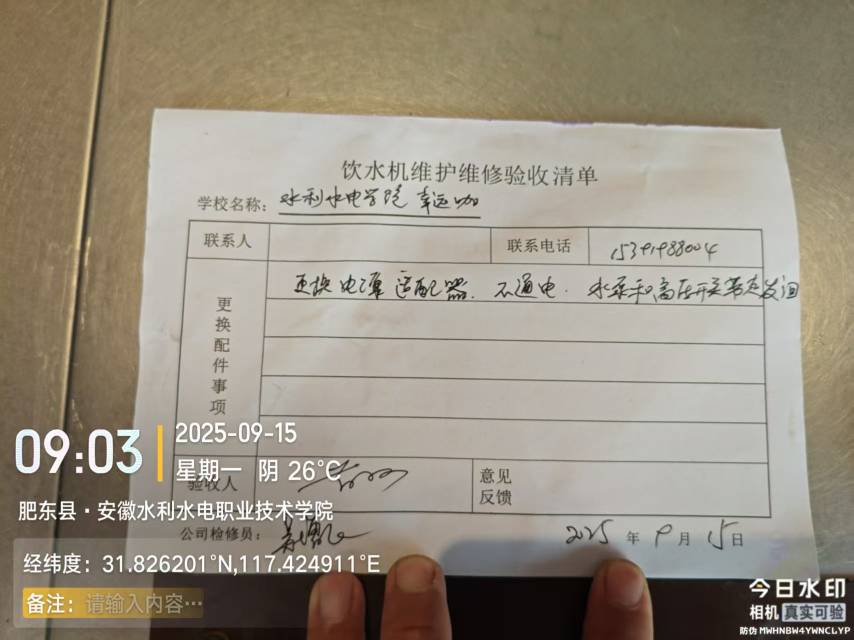 饮水机维护维修验收清单
学校名称：水利水电学院 幸运咖
联系人 联系电话 15391988004
更换配件事项
更换电源适配器。不通电。水泵和高压开关带走发回
验收人
意见反馈
公司检修员：
2025年9月15日
09:03
2025-09-15
星期一 阴 26℃
肥东县·安徽水利水电职业技术学院
经纬度：31.826201°N,117.424911°E
备注：请输入内容…
今日水印
相机 真实可验
防伪 MWHNBW4YWNCLYP